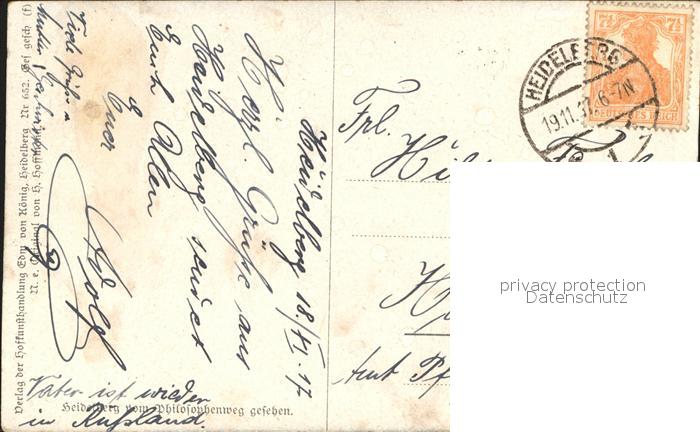 Heidelberg 18./XI. 17
Herzl. Grüße aus
Heidelberg sendet
Euch Allen
Euer
Adolf
Viele Grüße v.
Vater ist wieder
in Rußland.
Heidelberg vom Philosophenweg gesehen.
Verlag der Hofkunsthandlung Edm von König, Heidelberg Nr 652. Ges gesch (f)
N. e. Original von H. Hoffmann
Frl.
Amt Pf
HEIDELBERG
19.11.17. 6-7N
7½ 7½
DEUTSCHES REICH
privacy protection
Datenschutz